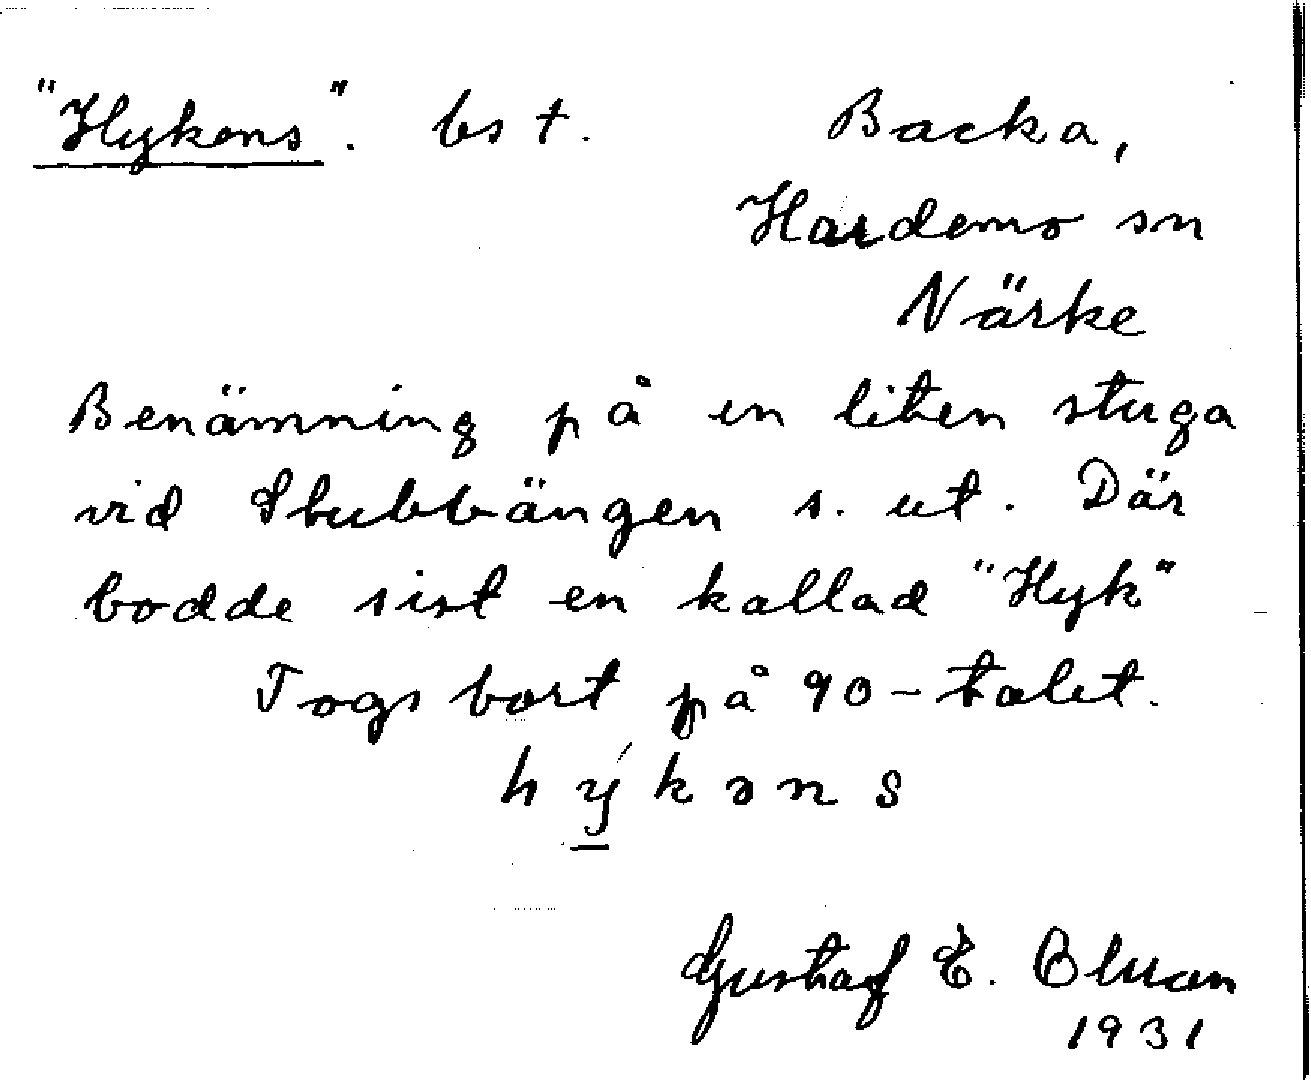 "Hykens". bs †. Backa,
Hardemo sn
Närke
Benämning på en liten stuga
vid Stubbängen s. ut. Där
bodde sist en kallad "Hyk"
Togs bort på 90-talet.
hýkəns
Gustaf E. Bluan
1931